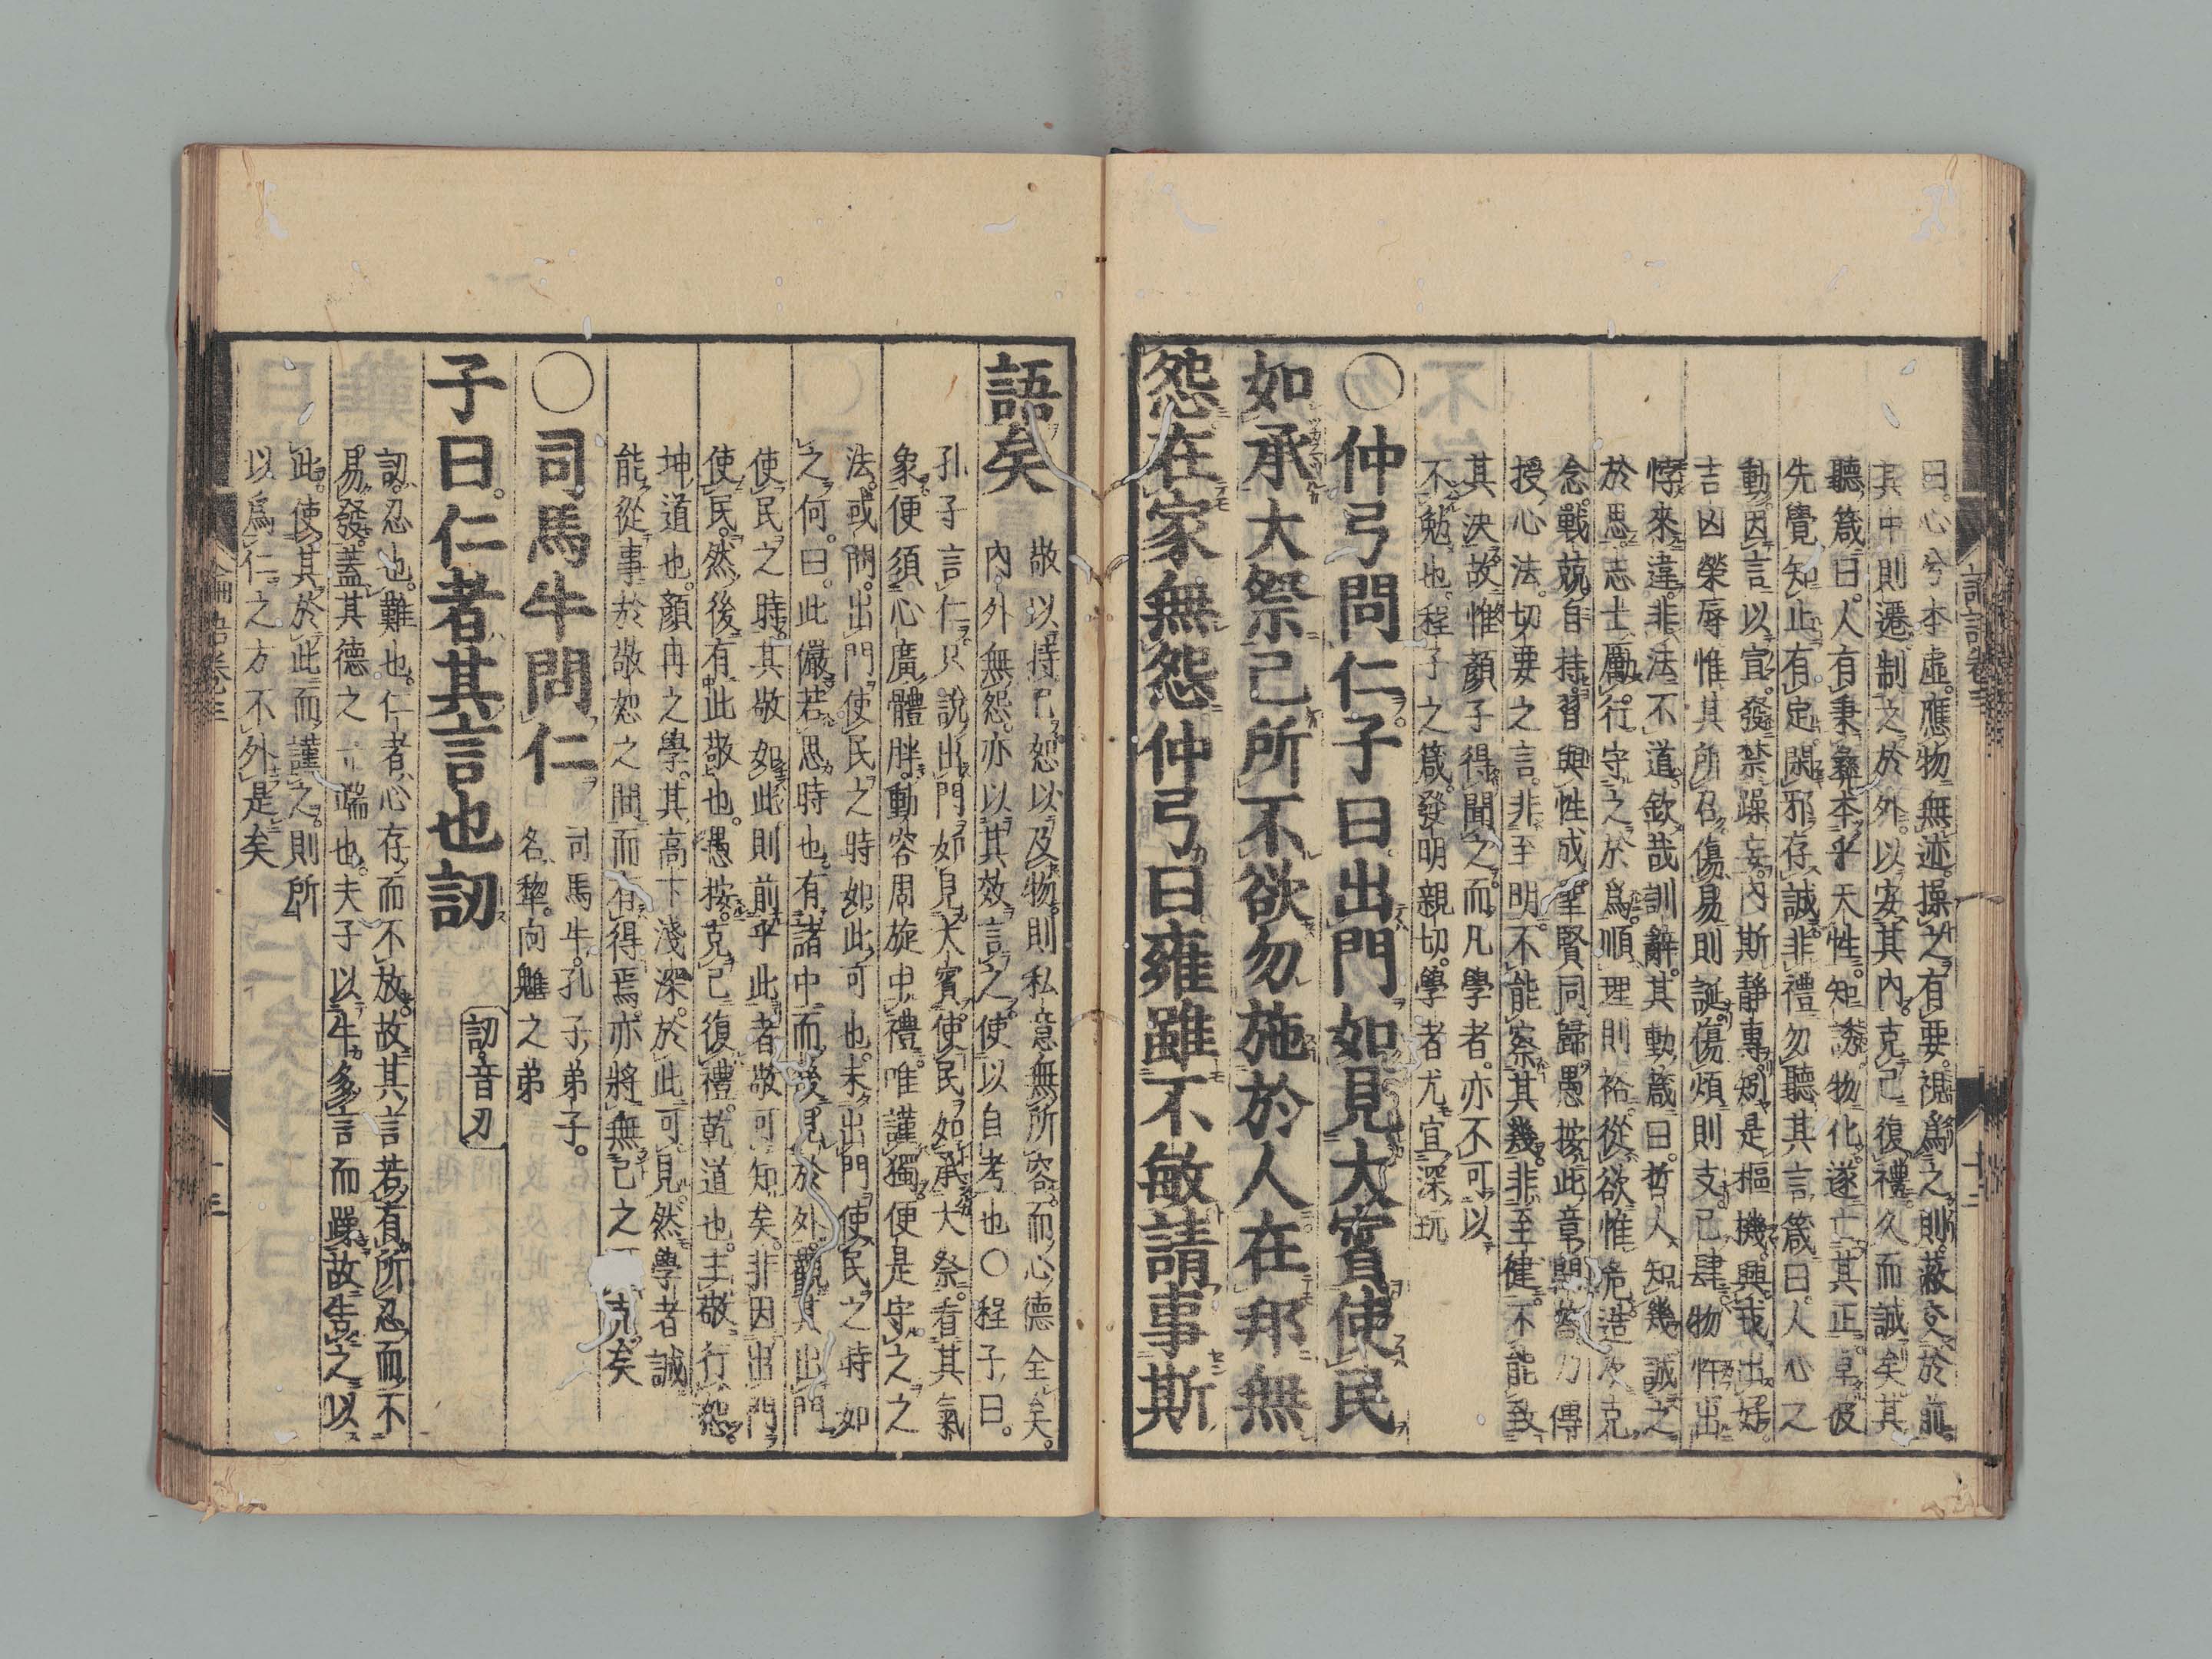 曰。心兮本虛。應物無迹。操之有要。視爲之則。蔽交於前。
其中則遷。制之於外。以安其內。克己復禮。久而誠矣。其
聽箴曰。人有秉彝。本乎天性。知誘物化。遂亡其正。卓彼
先覺。知止有定。閑邪存誠。非禮勿聽。其言箴曰。人心之
動。因言以宣。發禁躁妄。內斯靜專。矧是樞機。興戎出好。
吉凶榮辱。惟其所召。傷易則誕。傷煩則支。己肆物忤。出
悖來違。非法不道。欽哉訓辭。其動箴曰。哲人知幾。誠之
於思。志士厲行。守之於爲。順理則裕。從欲惟危。造次克
念。戰兢自持。習與性成。聖賢同歸。愚按。此章問答。乃傳
授心法。切要之言。非至明。不能察其幾。非至健。不能致
其決。故惟顏子得聞之。而凡學者。亦不可以
不勉也。程子之箴。發明親切。學者尤宜深玩
○仲弓問仁。子曰出門如見大賓使民
如承大祭己所不欲勿施於人在邦無
怨在家無怨仲弓曰雍雖不敏請事斯
語矣
敬以持己。恕以及物。則私意無所容。而心德全矣。
內外無怨。亦以其效言之。使以自考也○程子曰。
孔子言仁。只說出門如見大賓。使民如承大祭。看其氣
象。便須心廣體胖。動容周旋中禮。唯謹獨。便是守之之
法。或問。出門使民之時。如此可也。未出門使民之時。如
之何。曰。此儼若思時也。有諸中。而後見於外。觀其出門
使民之時。其敬如此。則前乎此者敬可知矣。非因出門
使民。然後有此敬也。愚按。克己復禮。乾道也。主敬行恕。
坤道也。顏冉之學。其高下淺深。於此可見。然學者誠
能從事於敬恕之間。而有得焉。亦將無己之可克矣
○司馬牛問仁
司馬牛。孔子弟子。
名犂。向魋之弟
子曰。仁者其言也訒
訒。音刃
訒。忍也。難也。仁者心存而不放。故其言若有所忍而不
易發。蓋其德之一端也。夫子以牛多言而躁。故告之以
此。使其於此而謹之。則所
以爲仁之方。不外是矣
論語卷三
十三